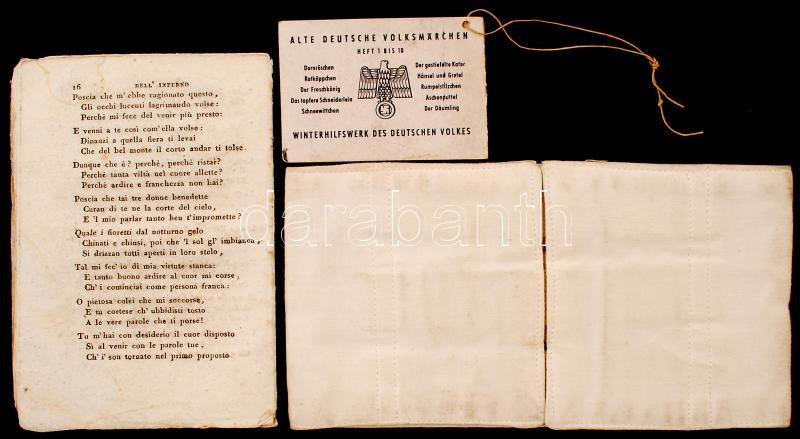 16 DELL' INFERNO
Poscia che m' ebbe ragionato questo,
Gli occhi lucenti lagrimando volse:
Perchè mi fece del venir più presto:
E venni a te così com' ella volse:
Dinanzi a quella fiera ti levai
Che del bel monte il corto andar ti tolse.
Dunque che è? perchè, perchè ristai?
Perchè tanta viltà nel cuore allette?
Perchè ardire e franchezza non hai?
Poscia che tai tre donne benedette
Curan di te ne la corte del cielo,
E 'l mio parlar tanto ben t'impromette?
Quale i fioretti dal notturno gelo
Chinati e chiusi, poi che 'l sol gl' imbianca,
Si drizzan tutti aperti in loro stelo,
Tal mi fec' io di mia virtute stanca:
E tanto buono ardire al cuor mi corse,
Ch' i cominciai come persona franca:
O pietosa colei che mi soccorse,
E tu cortese ch' ubbidisti tosto
A le vere parole che ti porse!
Tu m' hai con desiderio il cuor disposto
Sì al venir con le parole tue,
Ch' i' son tornato nel primo proposto
ALTE DEUTSCHE VOLKSMÄRCHEN
HEFT 1 BIS 10
Dornröschen
Rotkäppchen
Der Froschkönig
Das tapfere Schneiderlein
Schneewittchen
Der gestiefelte Kater
Hänsel und Gretel
Rumpelstilzchen
Aschenputtel
Der Däumling
WINTERHILFSWERK DES DEUTSCHEN VOLKES
darabanth